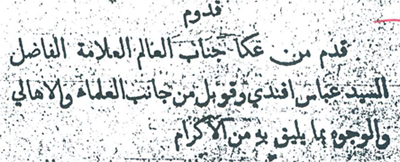 قدوم
قدم من عكا جناب العالم العلامة الفاضل
السيد عباس افندي وقوبل من جانب العلماء والاهالي
والوجوه بما يليق به من الأكرام